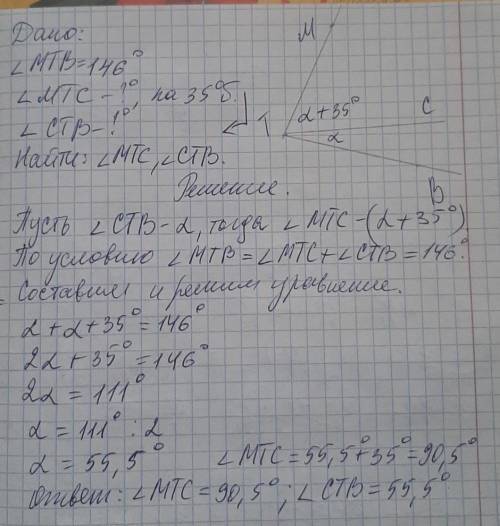 Дано:
∠MTB=146°
∠MTC - ?°, на 35°б.
∠CTB - ?°
Найти: ∠MTC, ∠CTB.
M
α+35°
C
T
α
B
Решение.
Пусть ∠CTB - α, тогда ∠MTC - (α+35°)
По условию ∠MTB = ∠MTC + ∠CTB = 146°.
Составим и решим уравнение.
α + α + 35° = 146°
2α + 35° = 146°
2α = 111°
α = 111° : 2
α = 55,5°
∠MTC = 55,5° + 35° = 90,5°
Ответ: ∠MTC = 90,5°; ∠CTB = 55,5°